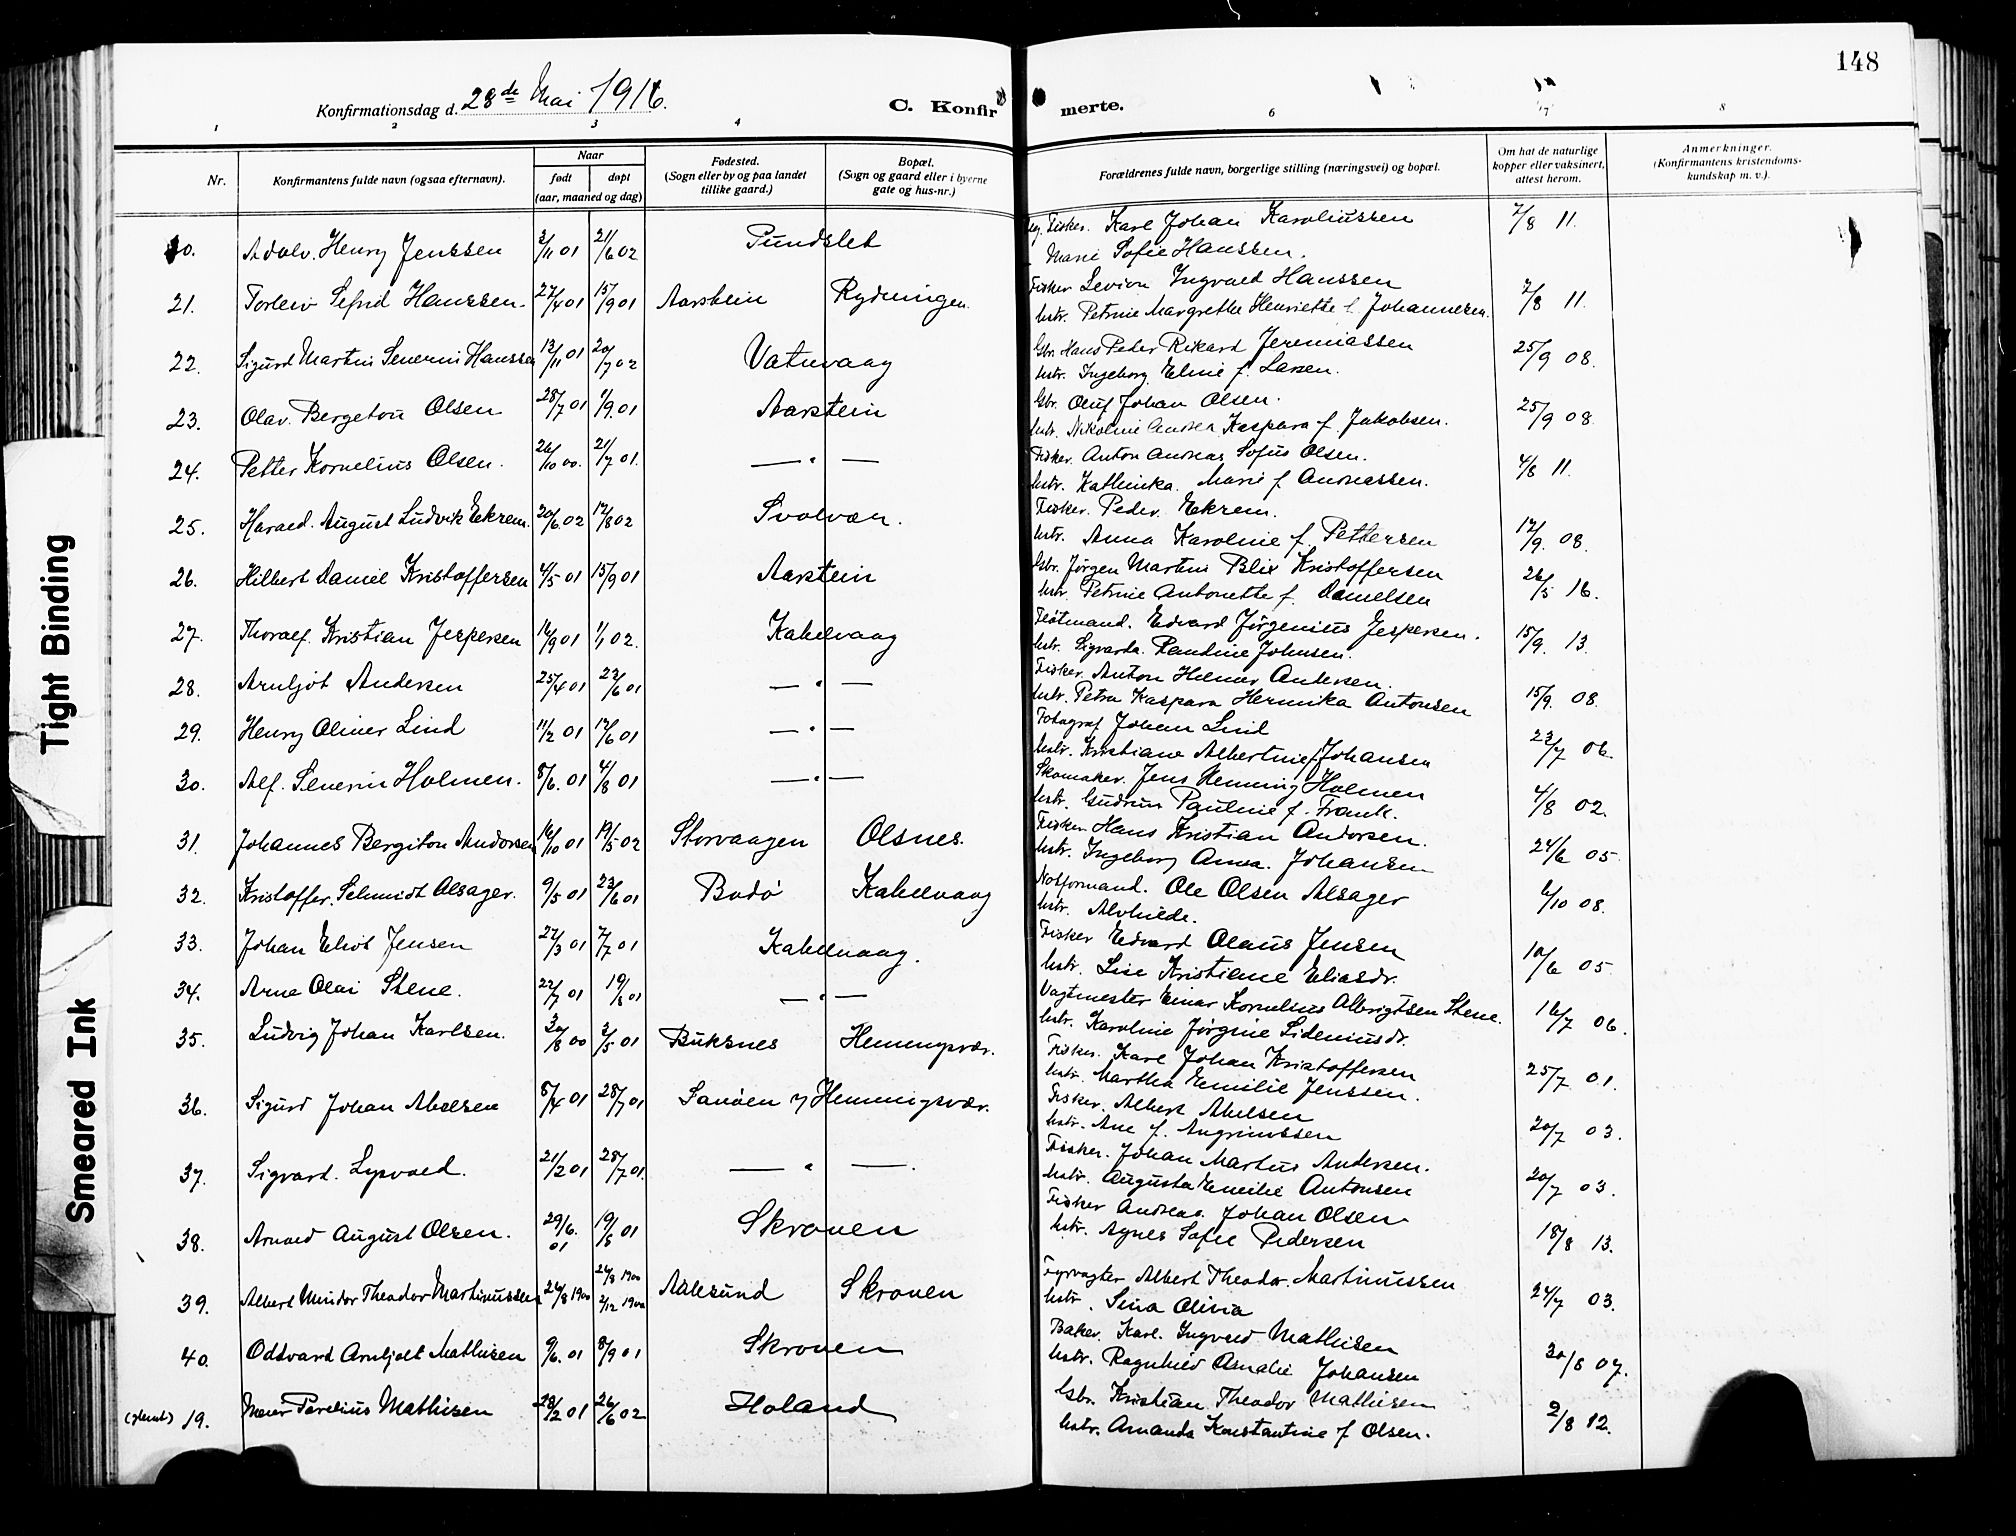 148
Konfirmationsdag d. 28de Mai 1916.
C. Konfir merte.
1 2 3 4 6 7 8
Nr.
Konfirmantens fulde navn (ogsaa efternavn).
Naar
født
døpt
(aar, maaned og dag)
Fødested.
(Sogn eller by og paa landet
tillike gaard.)
Bopæl.
(Sogn og gaard eller i byerne
gate og hus-nr.)
Forældrenes fulde navn, borgerlige stilling (næringsvei) og bopæl.
Om hat de naturlige
kopper eller vaksinert,
attest herom.
Anmerkninger.
(Konfirmantens kristendoms-
kundskap m. v.).
20. Adolv. Henry Jenssen 3/11 01 21/6 02 Pundslet Fisker. Karl Johan Karoliussen 7/8 11.
Marie Sofie Hanssen.
21. Torleiv Sefrid Hanssen. 27/4 01 15/9 01 Aarstein Rydningen. Fisker Levion Ingvald Hanssen 7/8 11.
hstr. Petrine Margrethe Henriette f. Johannesen.
22. Sigurd Martin Severin Hanssen 13/11 01 20/7 02 Vatnvaag Gbr. Hans Peder Rikard Jeremiassen 25/9 08.
hstr. Ingeborg Eline f. Larsen.
23. Olav. Bergeton Olsen 28/7 01 1/9 01 Aarstein Gbr. Oluf Johan Olsen. 25/9 08
hstr. Nikoline Andrea Kaspara f. Jakobsen.
24. Petter Kornelius Olsen. 26/10 00. 21/7 01. — " — Fisker. Anton Andreas Sofus Olsen. 4/8 11.
hstr. Kathinka. Marie f. Andreassen.
25. Harald. August Ludvik Ekrem. 20/6 02 17/8 02 Svolvær. Fisker. Peder. Ekrem. 17/9. 08.
hstr. Anna Karoline f. Pettersen
26. Hilbert Daniel Kristoffersen 4/5 01 15/9 01 Aarstein Gbr. Jørgen Martin Blix Kristoffersen 26/5 16.
hstr. Petrine Antonette f. Danielsen
27. Thoralf. Kristian Jespersen 16/9 01 1/1 02. Kabelvaag Fløtmand. Edvard Jørgenius Jespersen. 15/9. 13.
hstr. Sigvarda. Paudine Johnsen.
28. Arnljot Andersen 25/4 01 23/6 01 — " — Fisker. Anton Helmer Andersen. 15/9. 08.
hstr. Petra Kaspara Hermika Antonsen
29. Henry Oliver Lind 11/2 01 17/6 01 — " — Fotograf Johan Lind 23/7 06.
hstr. Kristiane Albertine f. Johansen
30. Alf. Severin Holmen. 8/6. 01 4/8 01 — " — Skomaker. Jens Henning Holmen 4/8 02.
hstr. Gudrun Pauline f. Frank.
31. Johannes Bergiton Andorsen 16/10 01 19/5 02 Storvaagen Olsnes. Fisker Hans Kristian Andorsen. 24/6 05.
hstr. Ingeborg Anna. Johansen
32. Kristoffer. Schmidt Alsager. 9/5 01 23/6 01 Bodø Kabelvaag Notformand. Ole Olsen Alsager 6/10 08.
hstr. Alvhilde.
33. Johan Eliot Jensen 27/3 01 7/7 01 Kabelvaag. Fisker Edvard Olaus Jensen 10/6 05.
hstr. Lise Kristiane Eliasdr.
34. Arne Olai Stene. 22/7 01 19/8 01 — " — Vagtmester Einar Kornelius Albrigtsen Stene. 16/7 06.
hstr. Karoline Jørgine Sideniusdr.
35. Ludvig Johan Karlsen. 30/8 00 3/5 01 Buksnes Henningsvær. Fisker. Karl Johan Kristoffersen 25/7 01.
hstr. Martha Emilie Jenssen.
36. Sigurd Johan Abelsen 8/4 01 28/7 01 Sanøen y Henningsvær. Fisker. Albert Abelsen 20/7 03.
hstr. Ane f. Angrimssen
37. Sigvart. Lysvold. 21/2 01 28/7 01. — " —. Fisker. Johan Martus Andersen. 20/7 03.
hstr. Augusta Emilie Antonsen
38. Arnold August Olsen. 29/6. 01 19/8 01 Skroven Fisker Andreas. Johan Olsen 18/8 13.
hstr. Agnes Sofie Pedersen
39. Albert Mindor Theodor Martinussen 26/8 1900 26/8 1900 2/12 1900 Aalesund Skroven Fyrvogter Albert Theodor. Martinussen 24/7 03.
hstr. Sina Olivia
40. Oddvard Arnljolt Mathisen 9/6. 01 8/9 01 Skroven Baker. Karl. Ingvald Mathisen 30/8 07.
hstr. Ragnhild Amalie Johansen
(glemt) 19. Meier Parelius Mathisen 28/2 01 26/6 02 Holand Gbr. Kristian Theodor Mathisen 2/8 12.
hstr. Amanda Konstantine f. Olsen.
Tight Binding
Smeared Ink